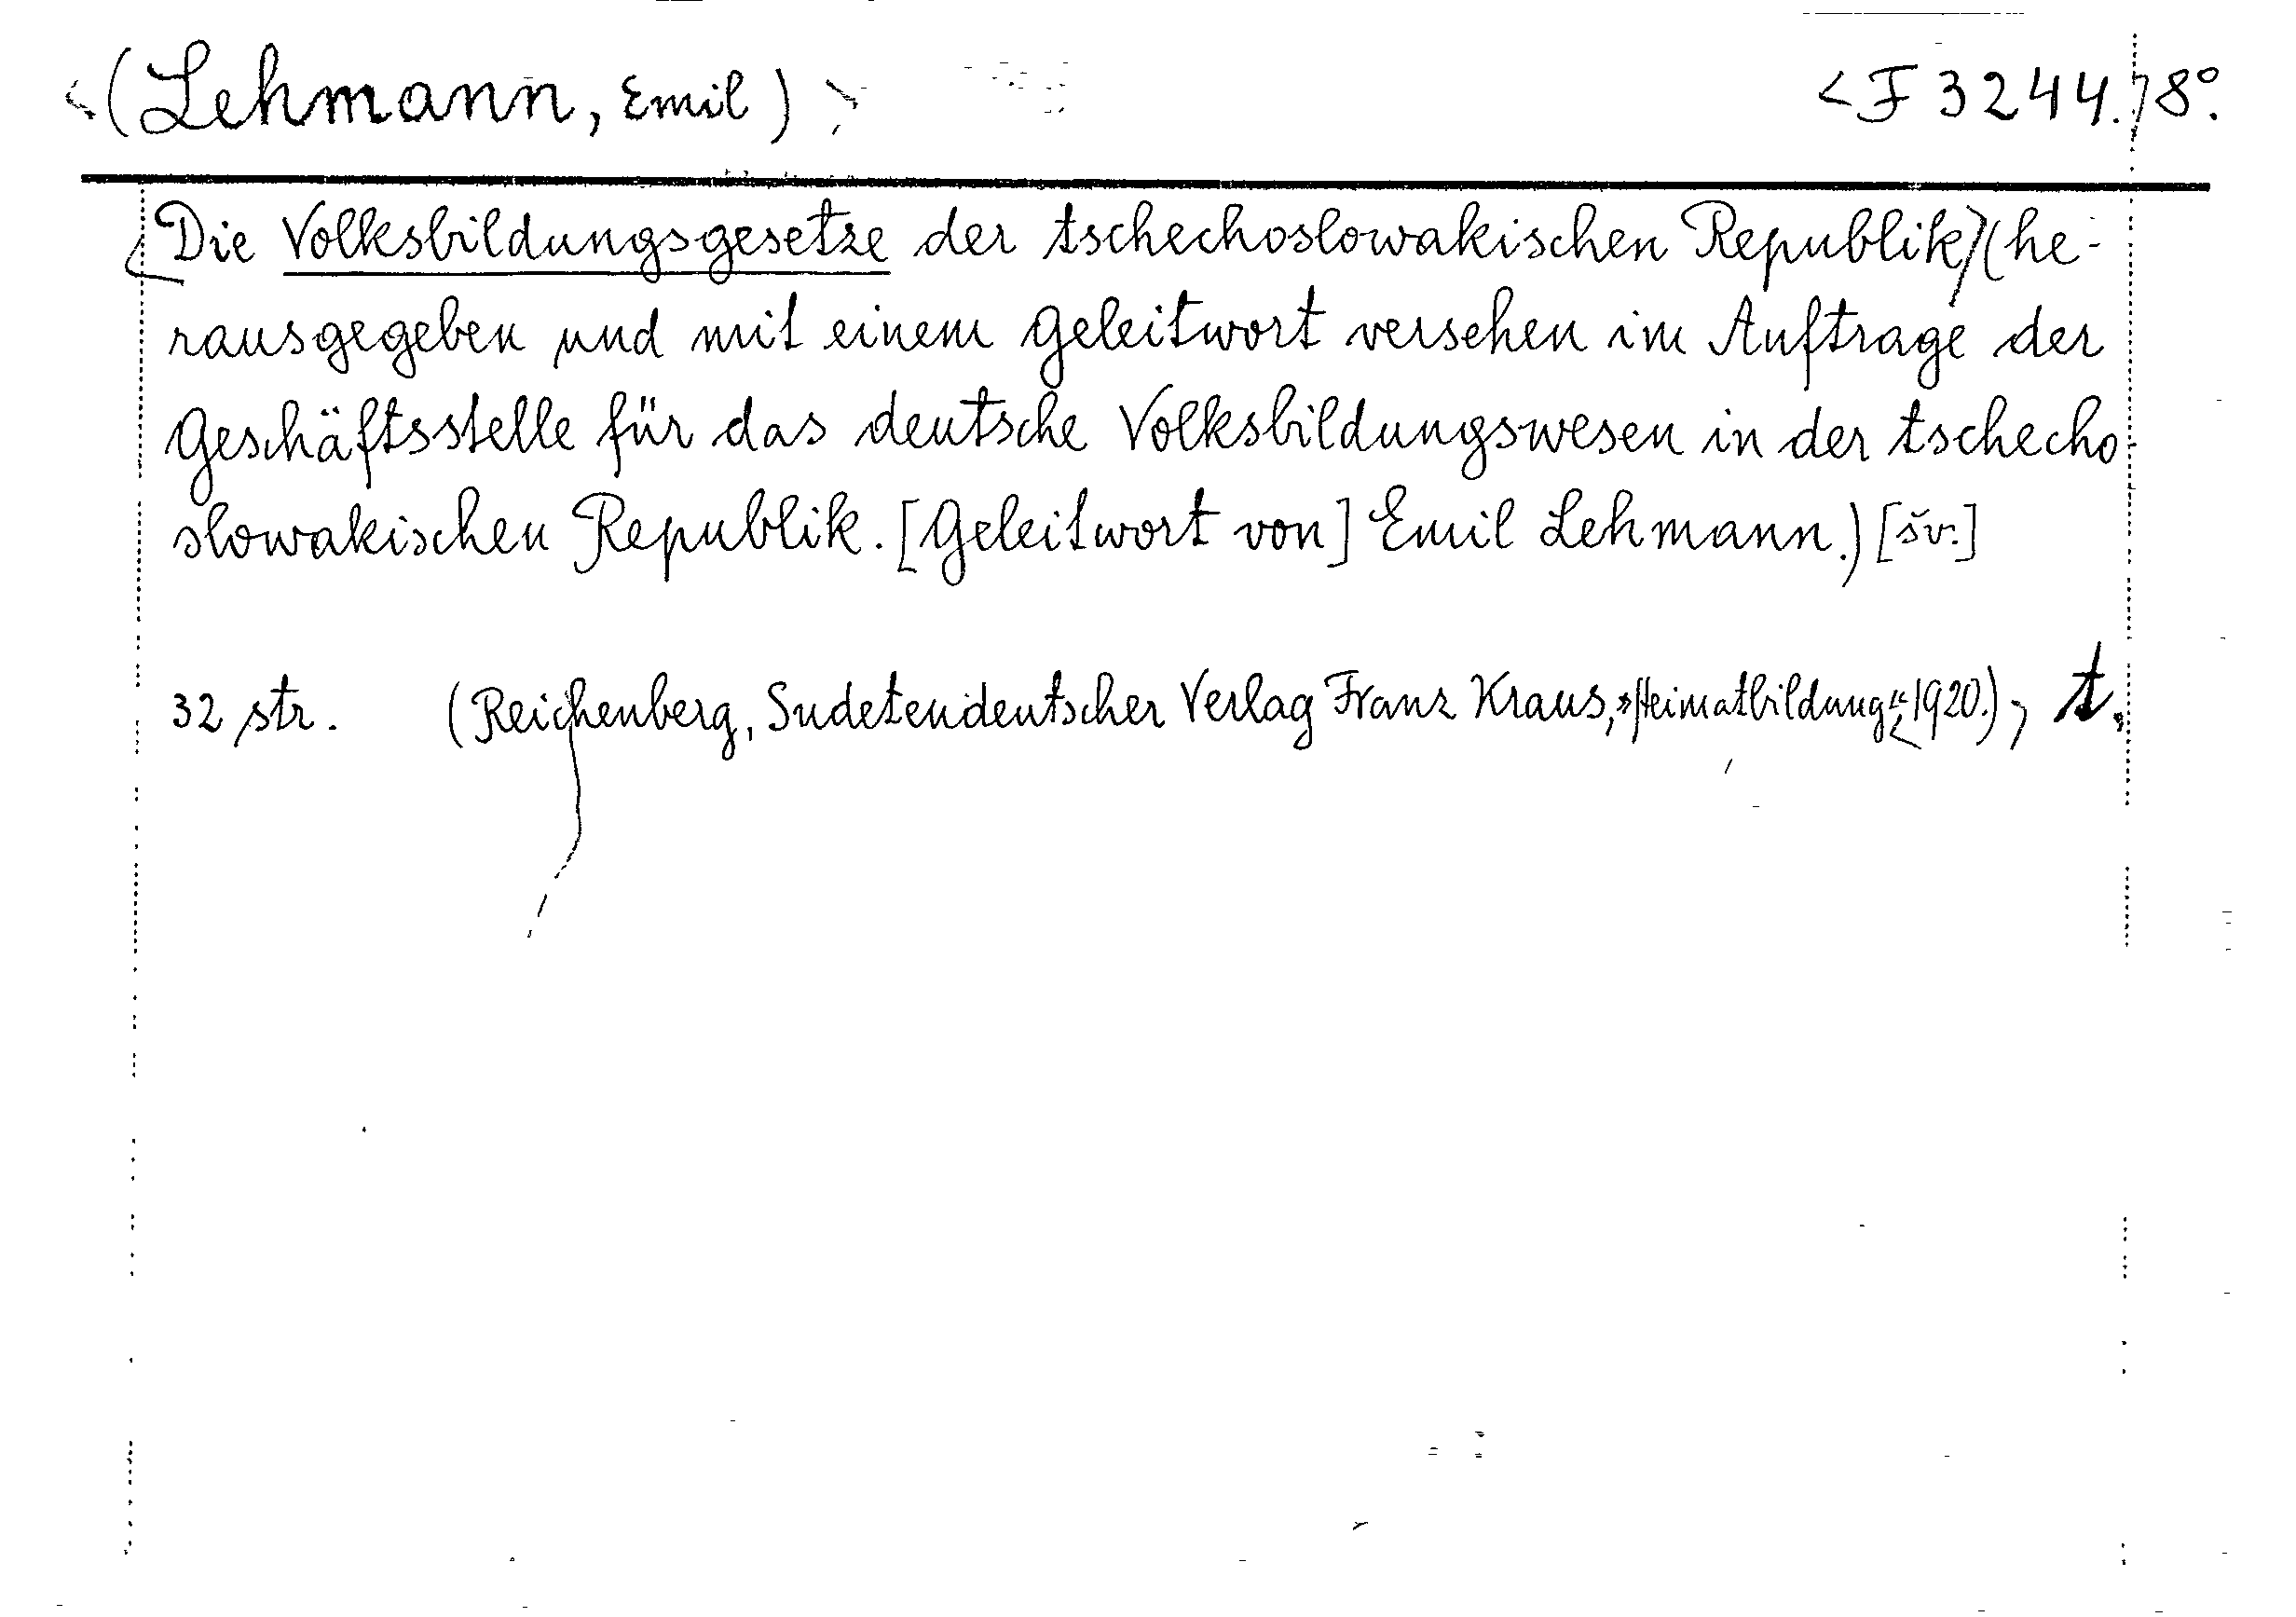 <(Lehmann, Emil)> <F 3244.>8°.
<Die Volksbildungsgesetze der tschechoslowakischen Republik>(he-
rausgegeben und mit einem Geleitwort versehen im Auftrage der
Geschäftsstelle für das deutsche Volksbildungswesen in der tschecho-
slowakischen Republik. [Geleitwort von] Emil Lehmann.) [šv.]
32 str. (Reichenberg, Sudetendeutscher Verlag Franz Kraus, »Heimatbildung«<1920.)> t.